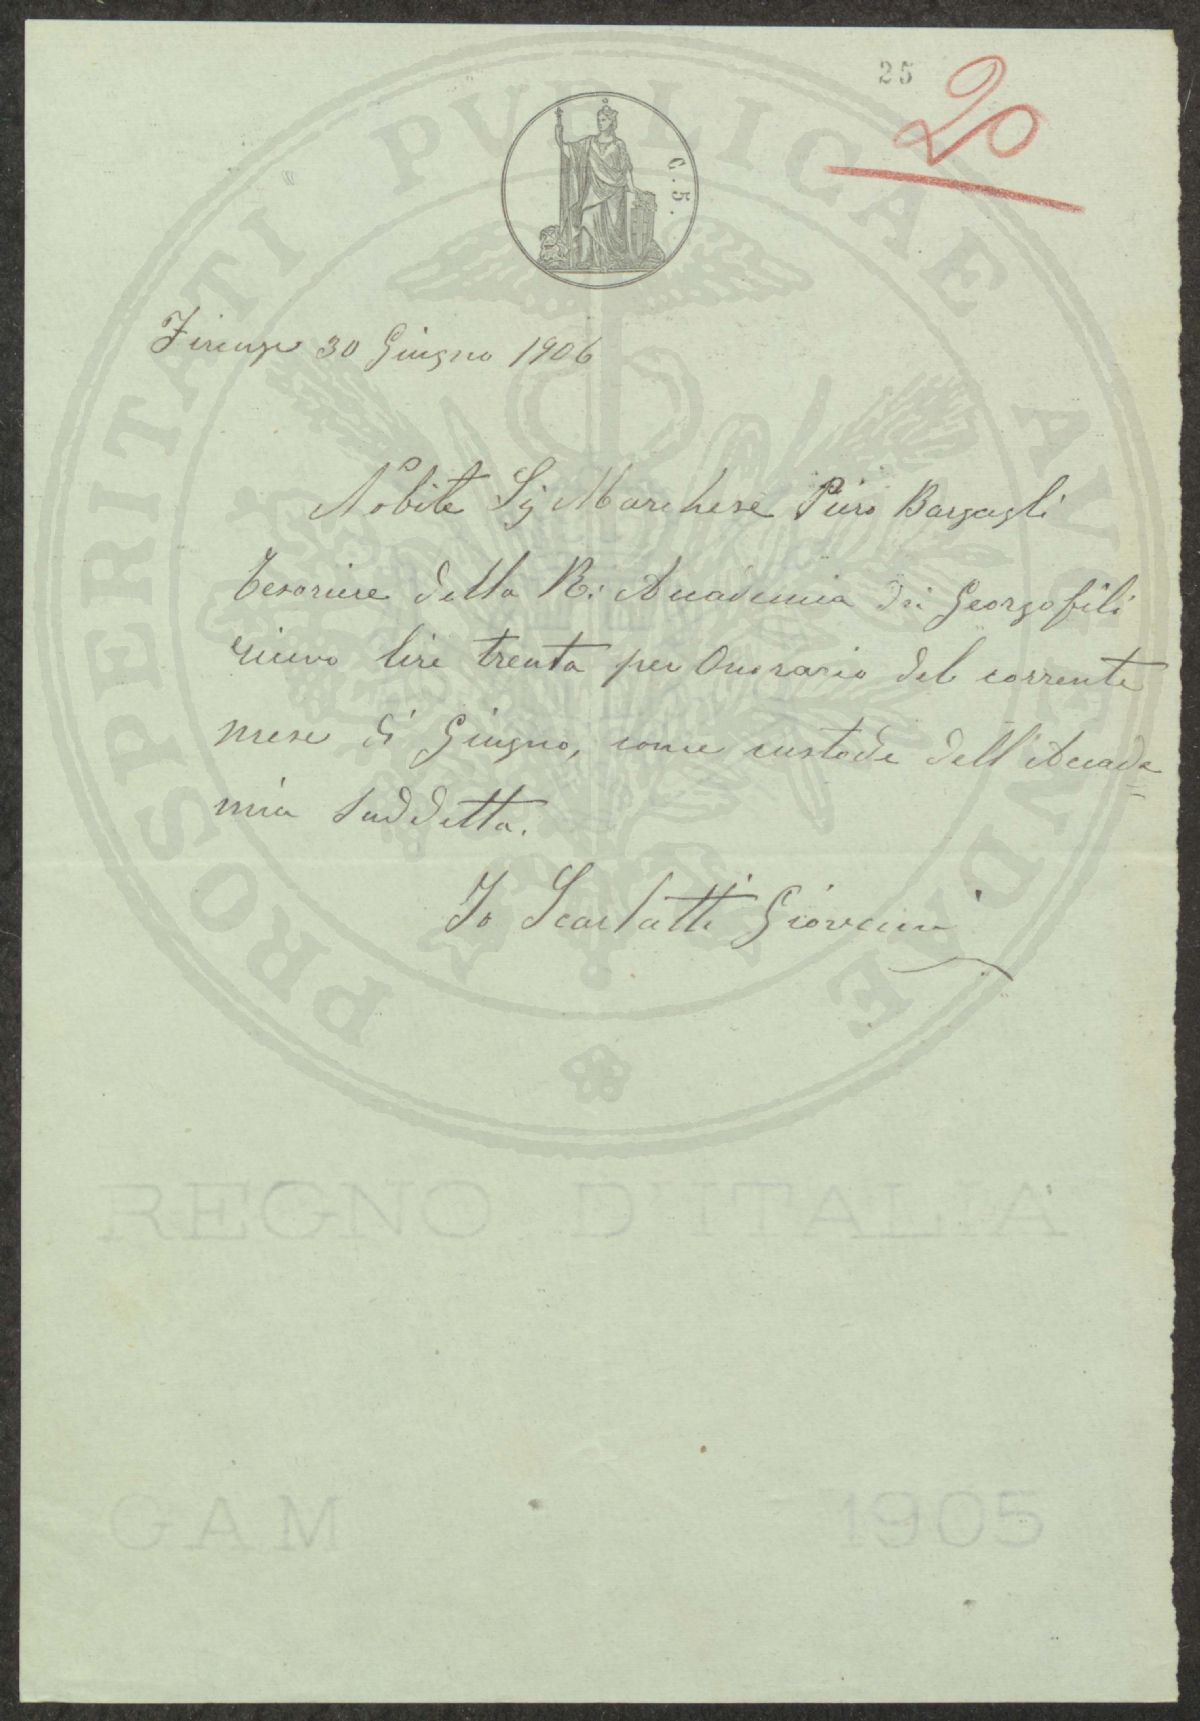 25
20
C. 5.
PROSPERITATI PUBLICAE AUGENDAE
Firenze 30 Giugno 1906
Nobile Sig Marchese Piero Bargagli
Tesoriere della R. Accademia dei Georgofili
ricevo lire trenta per Onorario del corrente
mese di Giugno, come custode dell'Accade
mia suddetta.
Io Scarlatti Giovanni
REGNO D'ITALIA
GAM 1905